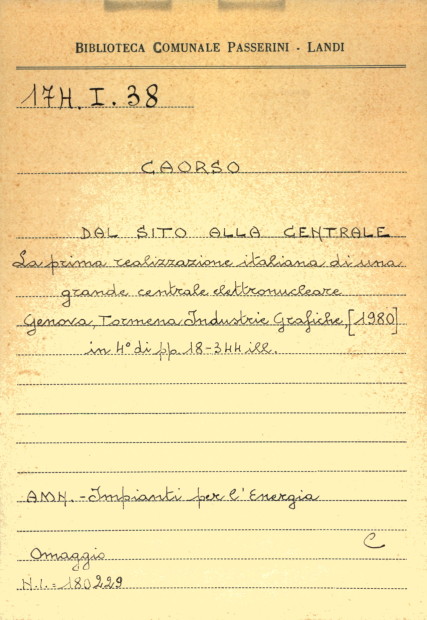 BIBLIOTECA COMUNALE PASSERINI - LANDI
17H. I. 38
CAORSO
DAL SITO ALLA CENTRALE
La prima realizzazione italiana di una
grande centrale elettronucleare
Genova, Tormena Industrie Grafiche, [1980]
in 4° di pp. 18-344 ill.
AMN. - Impianti per l'Energia
C
Omaggio
N.I. = 180229